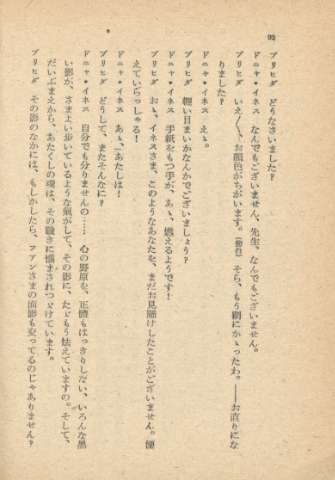 90
ブリヒダ　どうなさいました？
ドニャ・イネス　なんでもございません、先生、なんでもございません。
ブリヒダ　いえ〱、お顔色がちがいます。（傍白）そら、もう罠にかゝったわ。――お直りにな
りました？
ドニャ・イネス　えゝ。
ブリヒダ　軽い目まいかなんかでございましょう？
ドニャ・イネス　手紙をもつ手が、あゝ、燃えるようです！
ブリヒダ　おゝ、イネスさま、このようなあなたを、まだお見かけしたことがございません。
えていらっしゃる！
ドニャ・イネス　あゝ、あたしは！
ブリヒダ　どうして、またそんなに？
ドニャ・イネス　自分でも分りませんの……　心の野原を、正體もはっきりしない、いろんな黒
い影が、さまよい歩いているような気がして、その影に、たゞもう怯えていますの。そして、
だいぶまえから、あたくしの魂は、その騒ぎに悩まされつゞけています。
ブリヒダ　その影のなかには、もしかしたら、フアンさまの面影も交ってるのじゃありません？